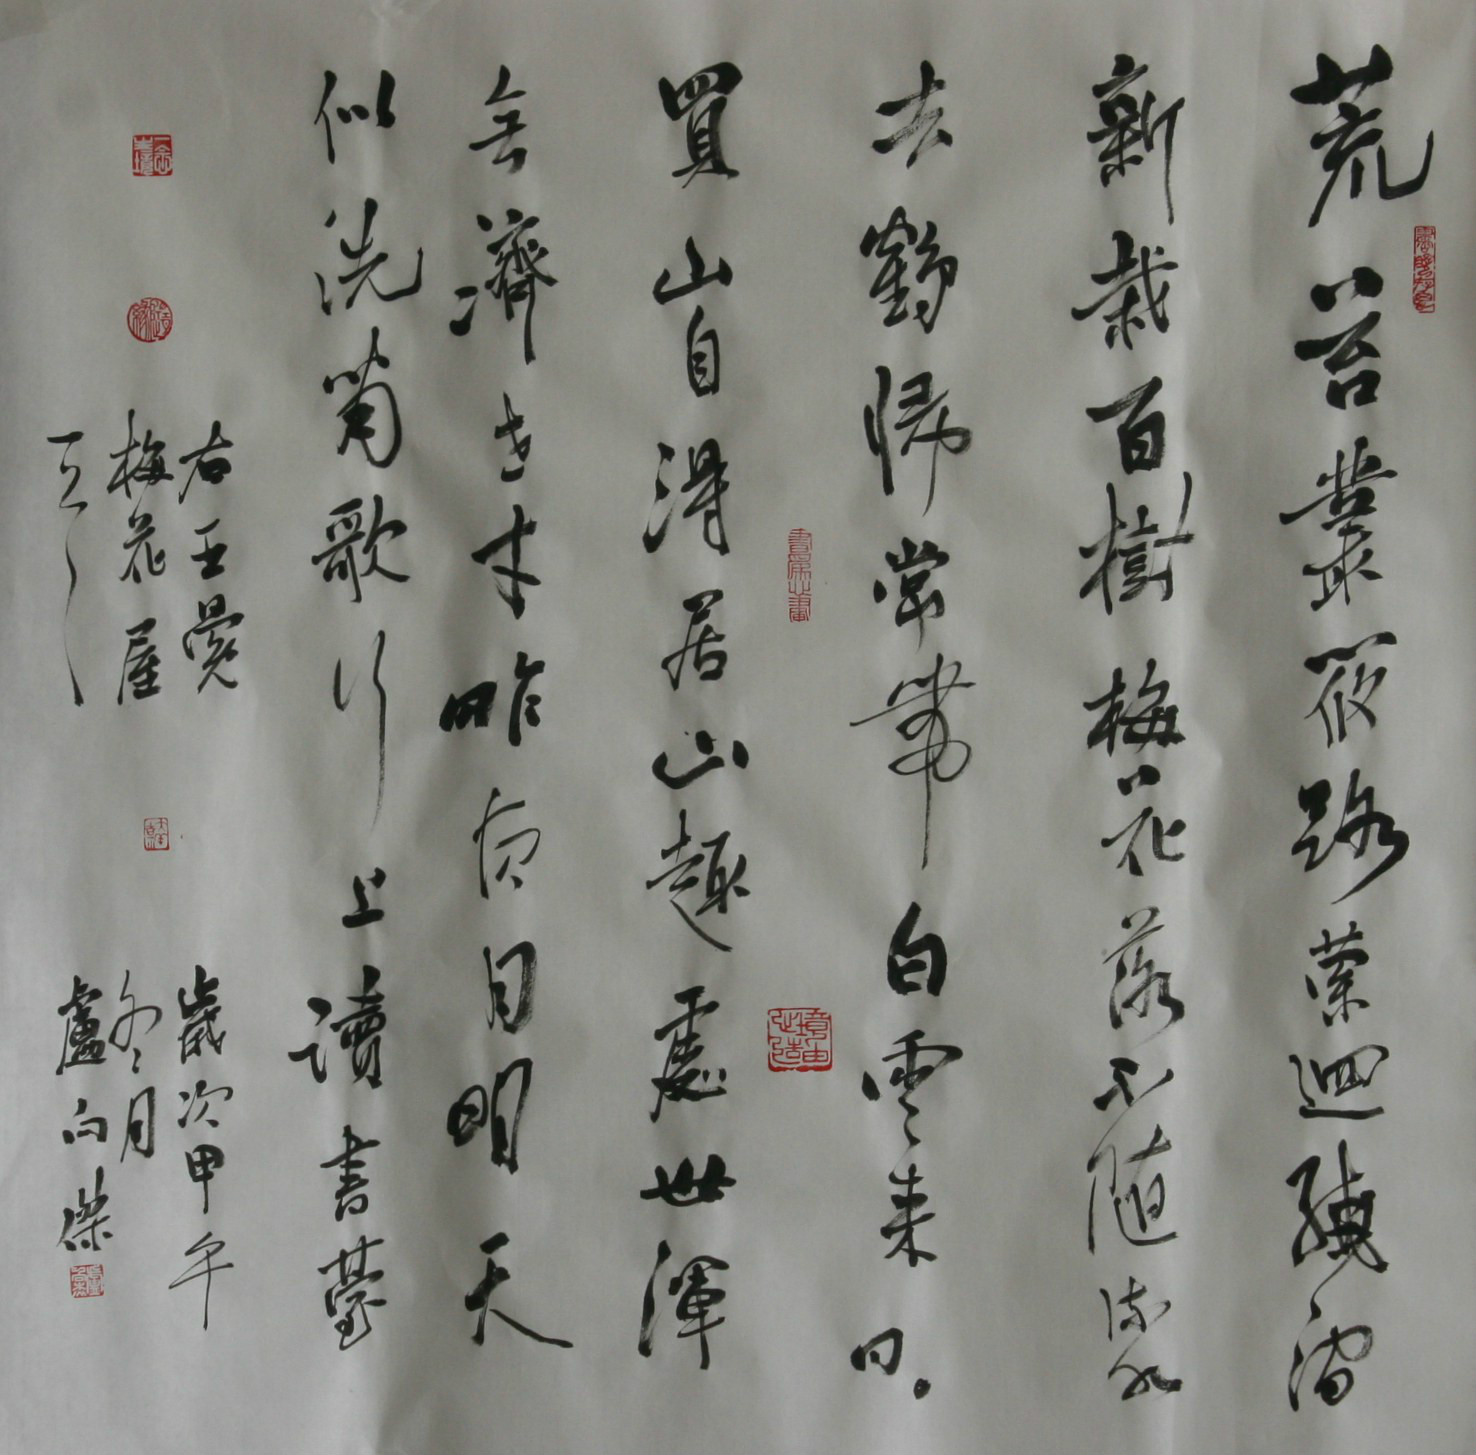 荒苔叢筱路縈迴繞澗
新栽百樹梅花落不隨流水
去鶴歸常帶白雲来
買山自得居山趣處世渾
無濟世材昨夜月明天
似洗嘯歌行上讀書臺
右王冕
梅花屋
一首
歲次甲午
冬月
盧向傑
書為心畫
境由心造